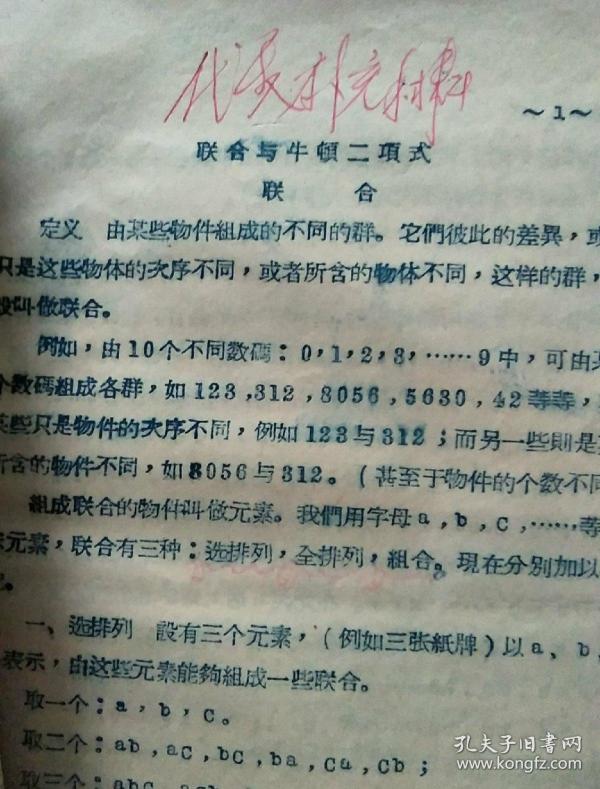 代表补充材料
～1～
联合与牛頓二項式
联 合
定义 由某些物件組成的不同的群。它們彼此的差異，或
只是这些物体的次序不同，或者所含的物体不同，这样的群，
叫做联合。
例如，由10个不同数碼：0,1,2,3,……9中，可由某
个数碼組成各群，如123,312,8056,5630,42等等，
某些只是物件的次序不同，例如123与312；而另一些則是
所含的物件不同，如8056与312。（甚至于物件的个数不同
組成联合的物件叫做元素。我們用字母a,b,c,……等
元素，联合有三种：选排列，全排列，組合。現在分别加以
。
一、选排列 設有三个元素，（例如三张紙牌）以a、b、
表示，由这些元素能夠組成一些联合。
取一个：a,b,c。
取二个：ab,ac,bc,ba,ca,cb；
取三个：abc,
孔夫子旧书网
www.kongfz.com